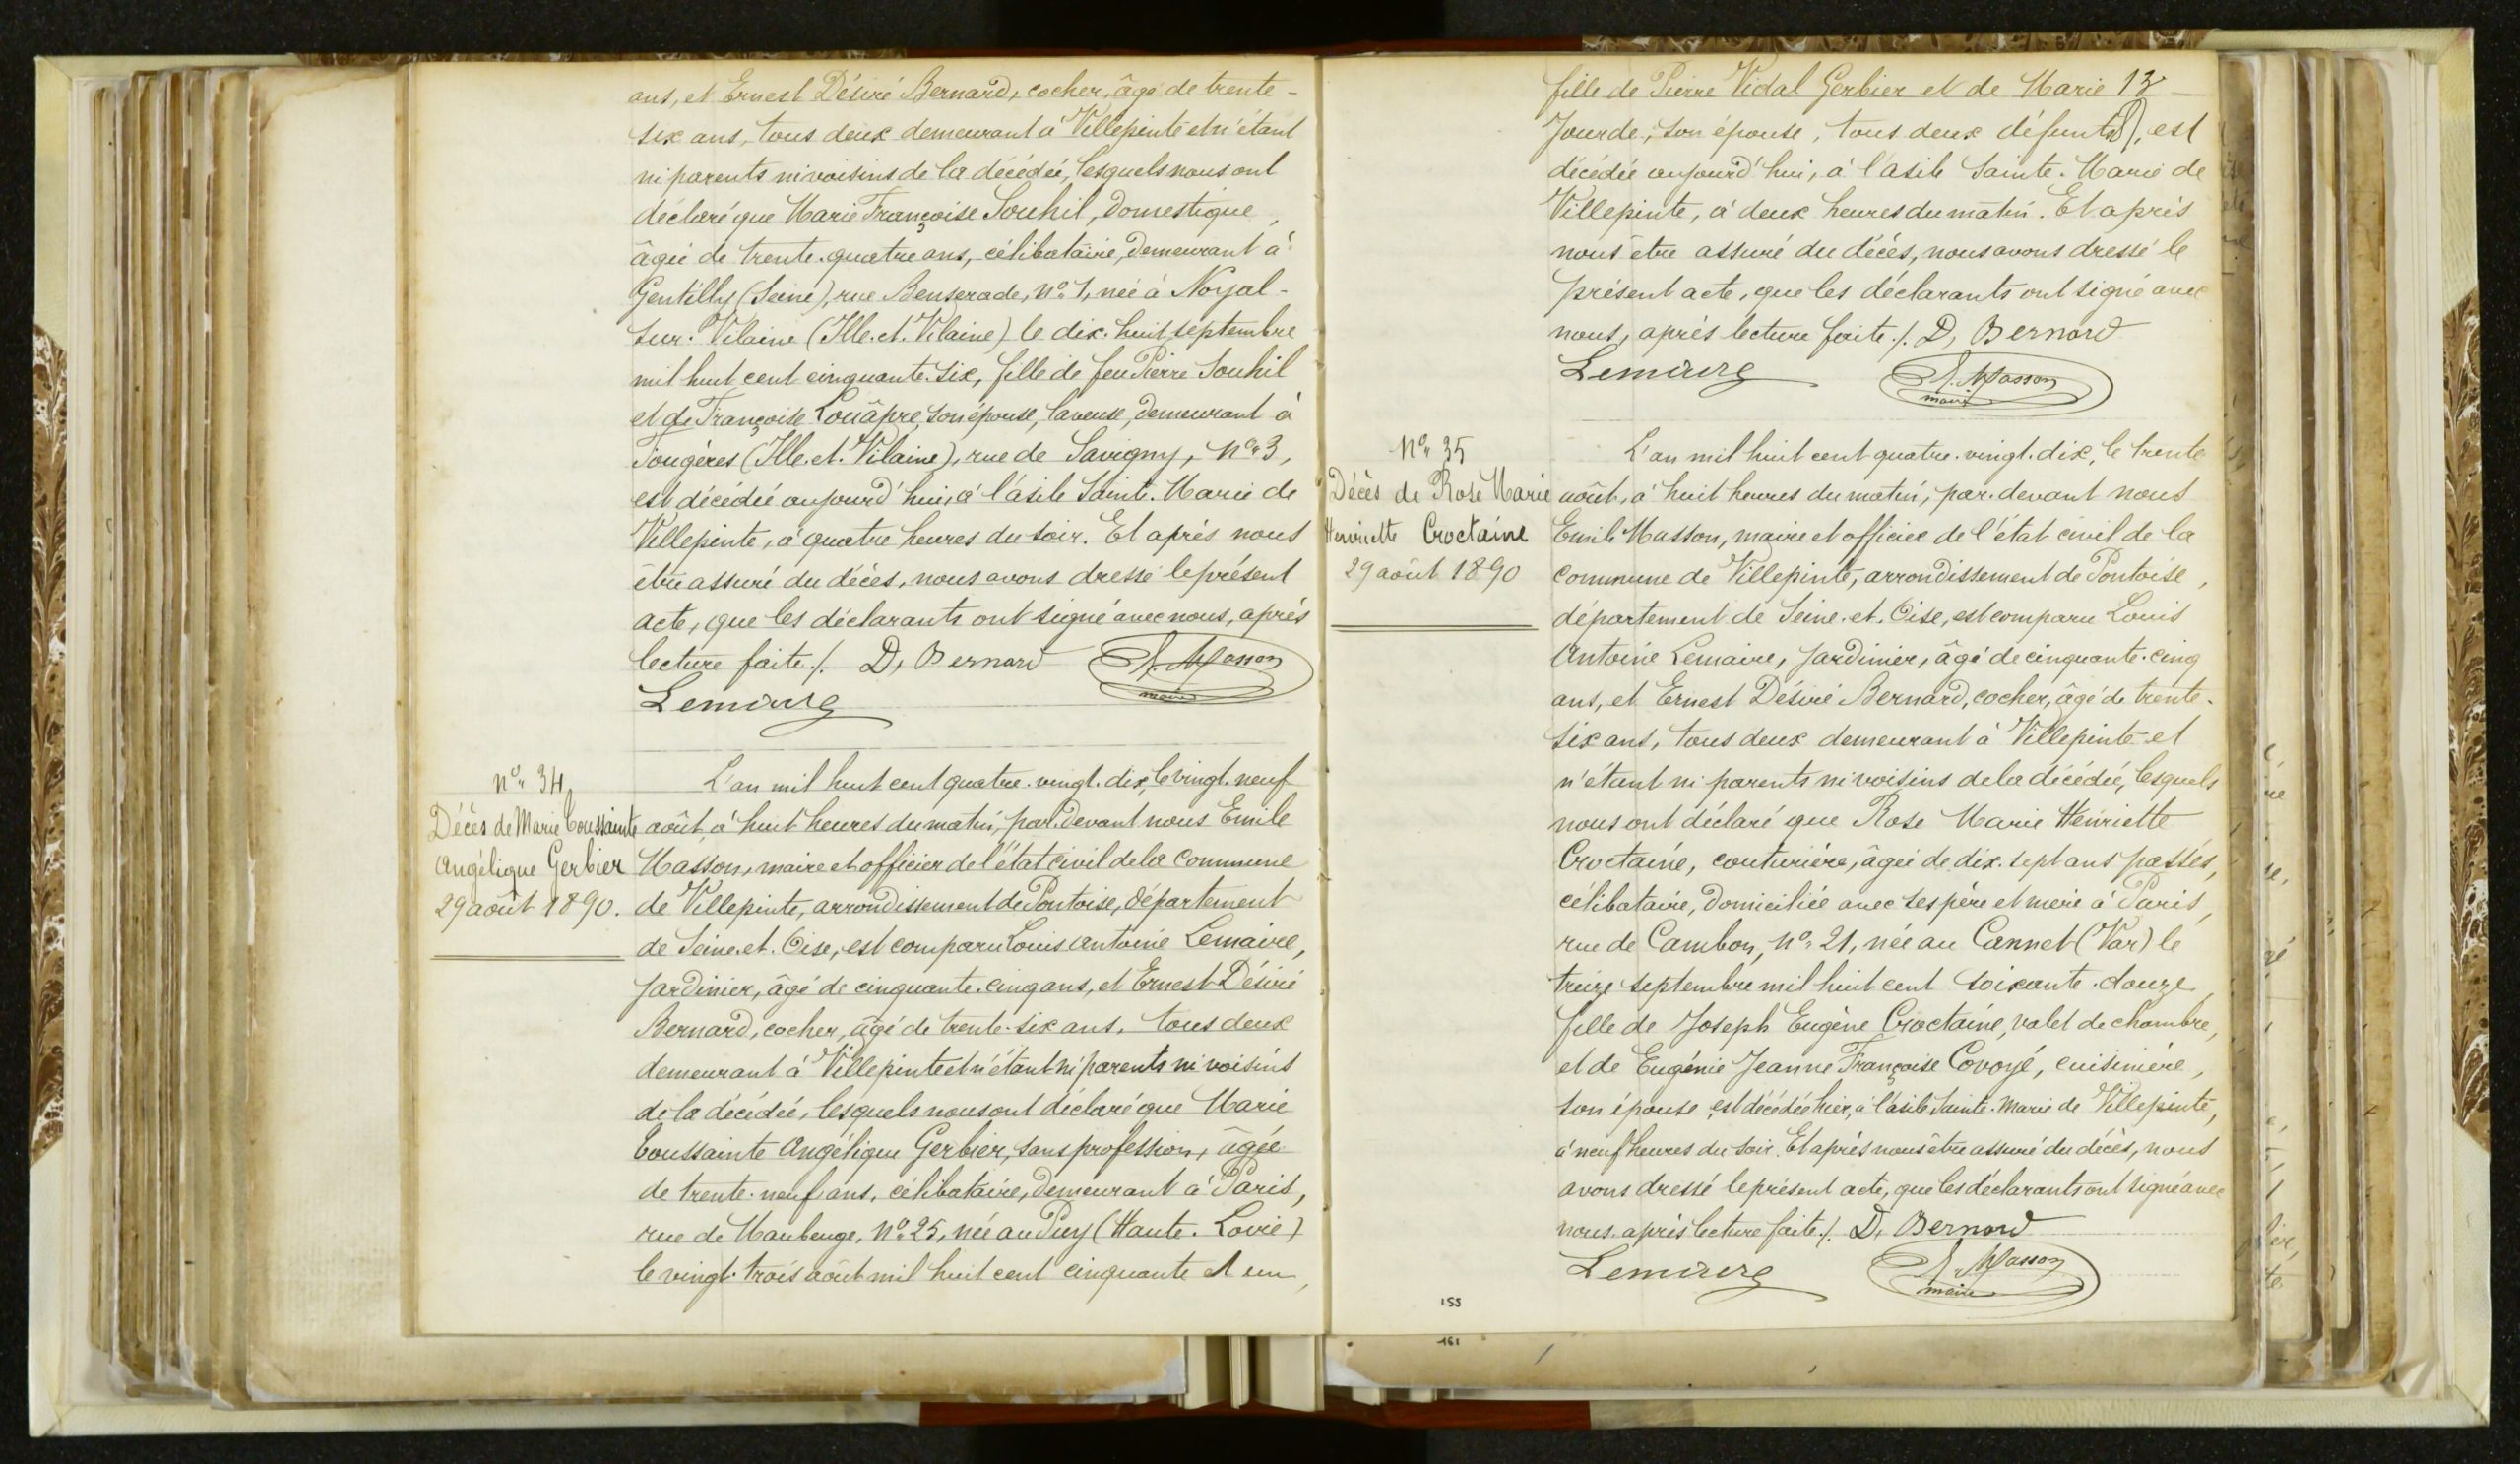 ans, et Ernest Désiré Bernard, cocher, âgé de trente-
six ans, tous deux demeurant à Villepinte et n'étant
ni parents ni voisins de la décédée, lesquels nous ont
déclaré que Marie Françoise Souhil, domestique,
âgée de trente-quatre ans, célibataire, demeurant à
Gentilly (Seine), rue Benserade, n° 1, née à Noyal-
sur-Vilaine (Ille-et-Vilaine) le dix-huit septembre
mil huit cent cinquante-six, fille de feu Pierre Souhil
et de Françoise Louâpre, son épouse, laveuse, demeurant à
Fougères (Ille-et-Vilaine), rue de Savigny, n° 3,
est décédée aujourd'hui, à l'asile Sainte-Marie de
Villepinte, à quatre heures du soir. Et après nous
être assuré du décès, nous avons dressé le présent
acte, que les déclarants ont signé avec nous, après
lecture faite ./. D, Bernard E. Masson
maire
Lemaire
n° 34
Décès de Marie Toussainte
Angélique Gerbier
29 août 1890.
L'an mil huit cent quatre-vingt-dix, le vingt-neuf
août, à huit heures du matin, par-devant nous Emile
Masson, maire et officier de l'état civil de la commune
de Villepinte, arrondissement de Pontoise, département
de Seine-et-Oise, est comparu Louis Antoine Lemaire,
jardinier, âgé de cinquante-cinq ans, et Ernest Désiré
Bernard, cocher, âgé de trente-six ans, tous deux
demeurant à Villepinte et n'étant ni parents ni voisins
de la décédée, lesquels nous ont déclaré que Marie
Toussainte Angélique Gerbier, sans profession, âgée
de trente-neuf ans, célibataire, demeurant à Paris,
rue de Maubeuge, n° 25, née au Puy (Haute-Loire)
le vingt-trois août mil huit cent cinquante et un,
fille de Pierre Vidal Gerbier et de Marie 13
Jourde, son épouse, tous deux défunts, est
décédée aujourd'hui, à l'asile Sainte-Marie de
Villepinte, à deux heures du matin. Et après
nous être assuré du décès, nous avons dressé le
présent acte, que les déclarants ont signé avec
nous, après lecture faite ./. D, Bernard
Lemaire E. Masson
maire
N° 35
Décès de Rose Marie
Henriette Croctaine
29 août 1890
L'an mil huit cent quatre-vingt-dix, le trente
août, à huit heures du matin, par-devant nous
Emile Masson, maire et officier de l'état civil de la
commune de Villepinte, arrondissement de Pontoise,
département de Seine-et-Oise, est comparu Louis
Antoine Lemaire, jardinier, âgé de cinquante-cinq
ans, et Ernest Désiré Bernard, cocher, âgé de trente-
six ans, tous deux demeurant à Villepinte et
n'étant ni parents ni voisins de la décédée, lesquels
nous ont déclaré que Rose Marie Henriette
Croctaine, couturière, âgée de dix-sept ans passés,
célibataire, domiciliée avec ses père et mère à Paris,
rue de Cambon, n° 21, née au Cannet (Var) le
treize septembre mil huit cent soixante-douze
fille de Joseph Eugène Croctaine, valet de chambre,
et de Eugénie Jeanne Françoise Covoyé, cuisinière,
son épouse, est décédée hier, à l'asile Sainte-Marie de Villepinte,
à neuf heures du soir. Et après nous être assuré du décès, nous
avons dressé le présent acte, que les déclarants ont signé avec
nous après lecture faite ./. D, Bernard
Lemaire E. Masson
maire
155
161